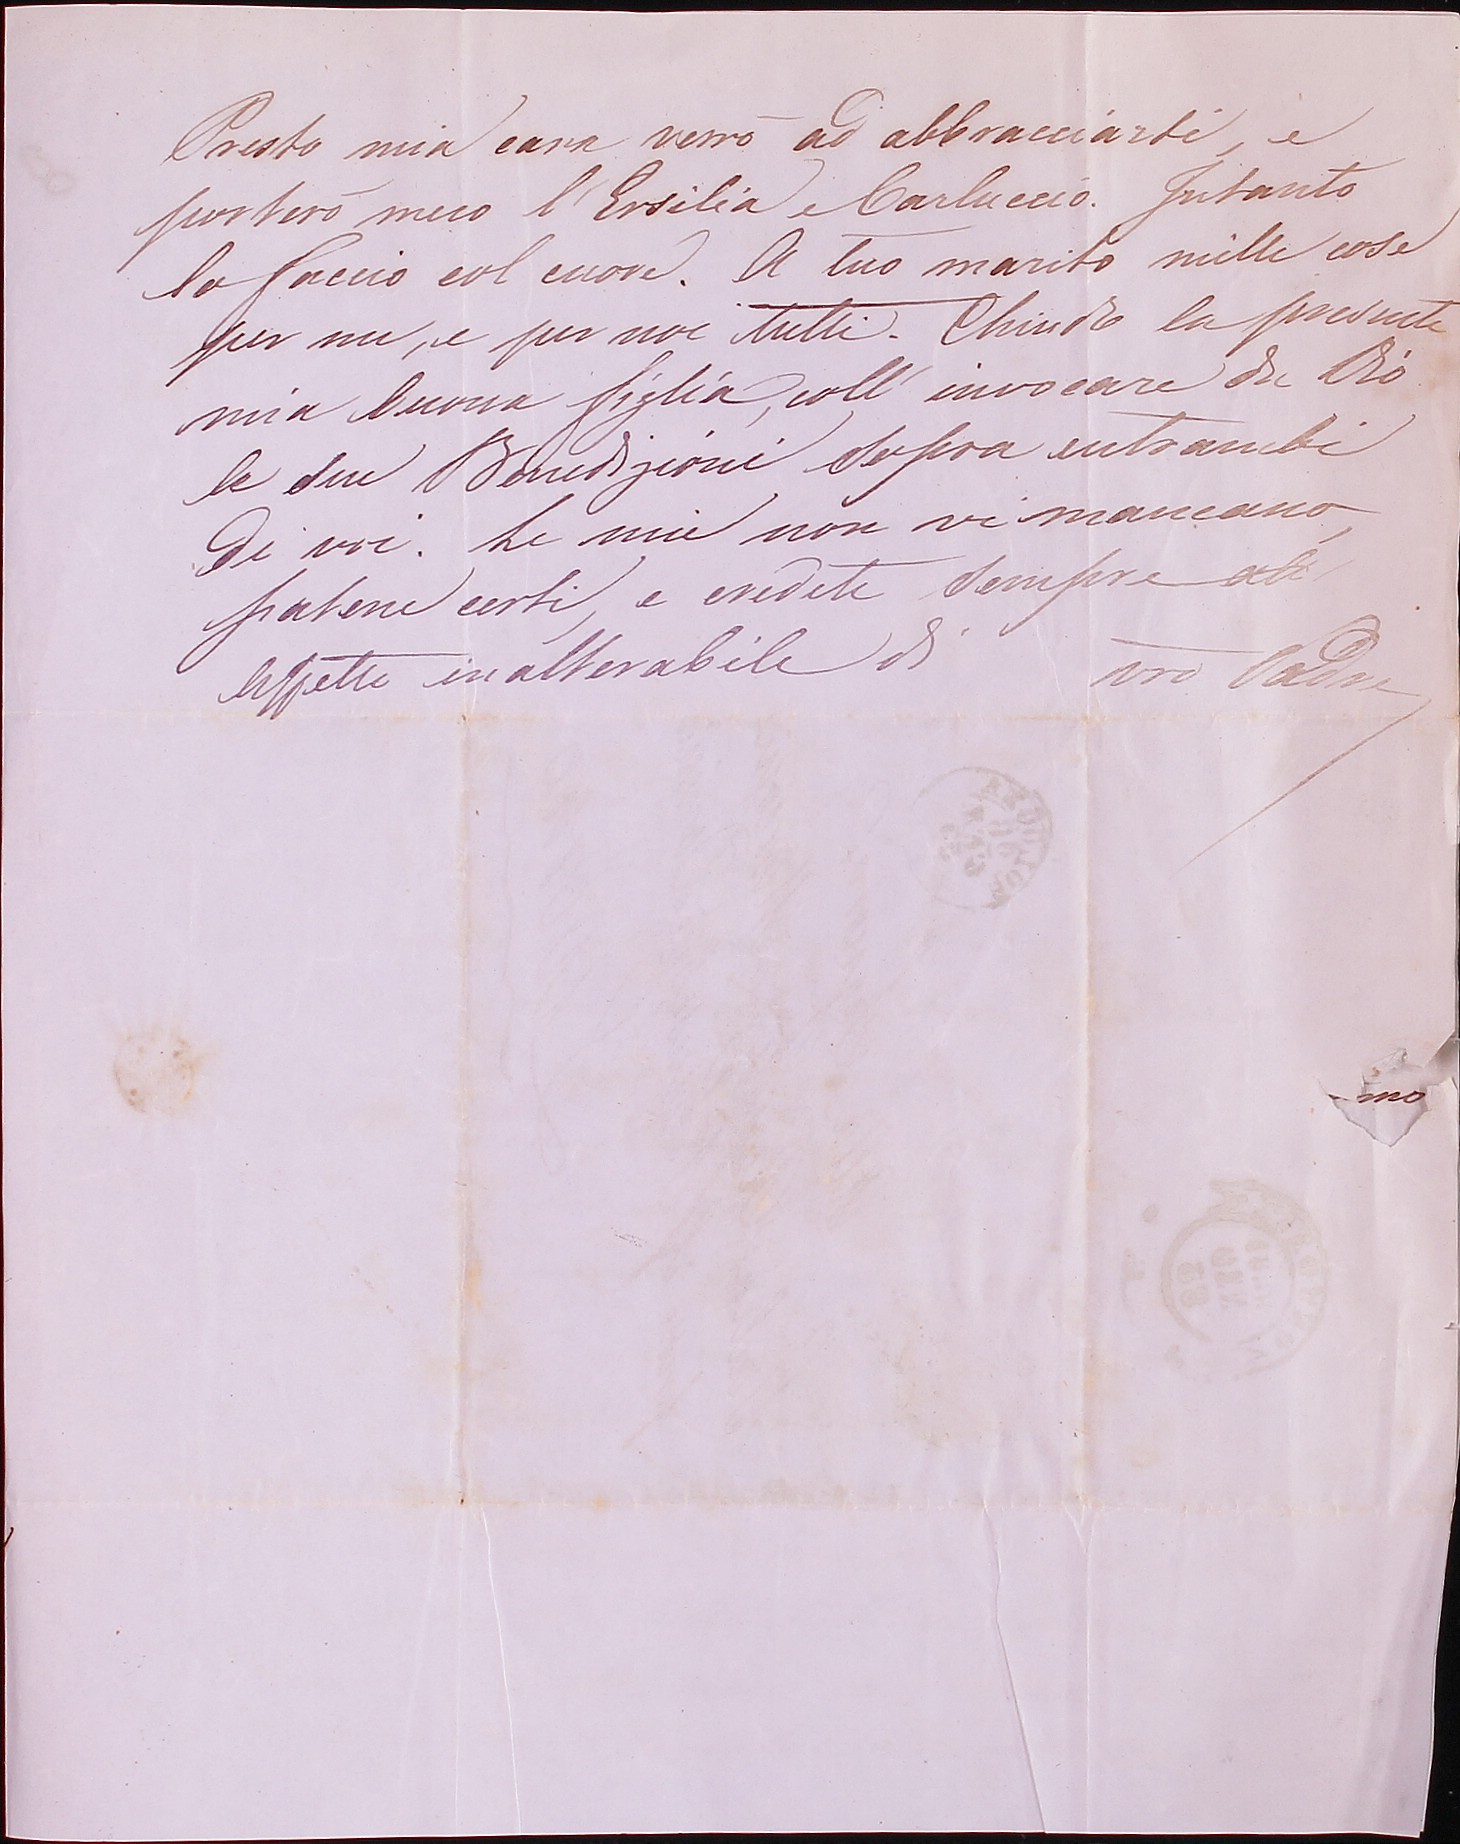 Presto mia cara verrò ad abbracciarti, e
porterò meco l'Ersilia e Carluccio. Intanto
lo faccio col cuore. A tuo marito mille cose
per me, e per noi tutti. Chiudo la presente
mia buona figlia, coll'invocare da Dio
le sue Benedizioni sopra entrambi
di voi. Le mie non vi mancano,
siatene certi, e credete sempre all'
affetto inalterabile di vro Padre
mo